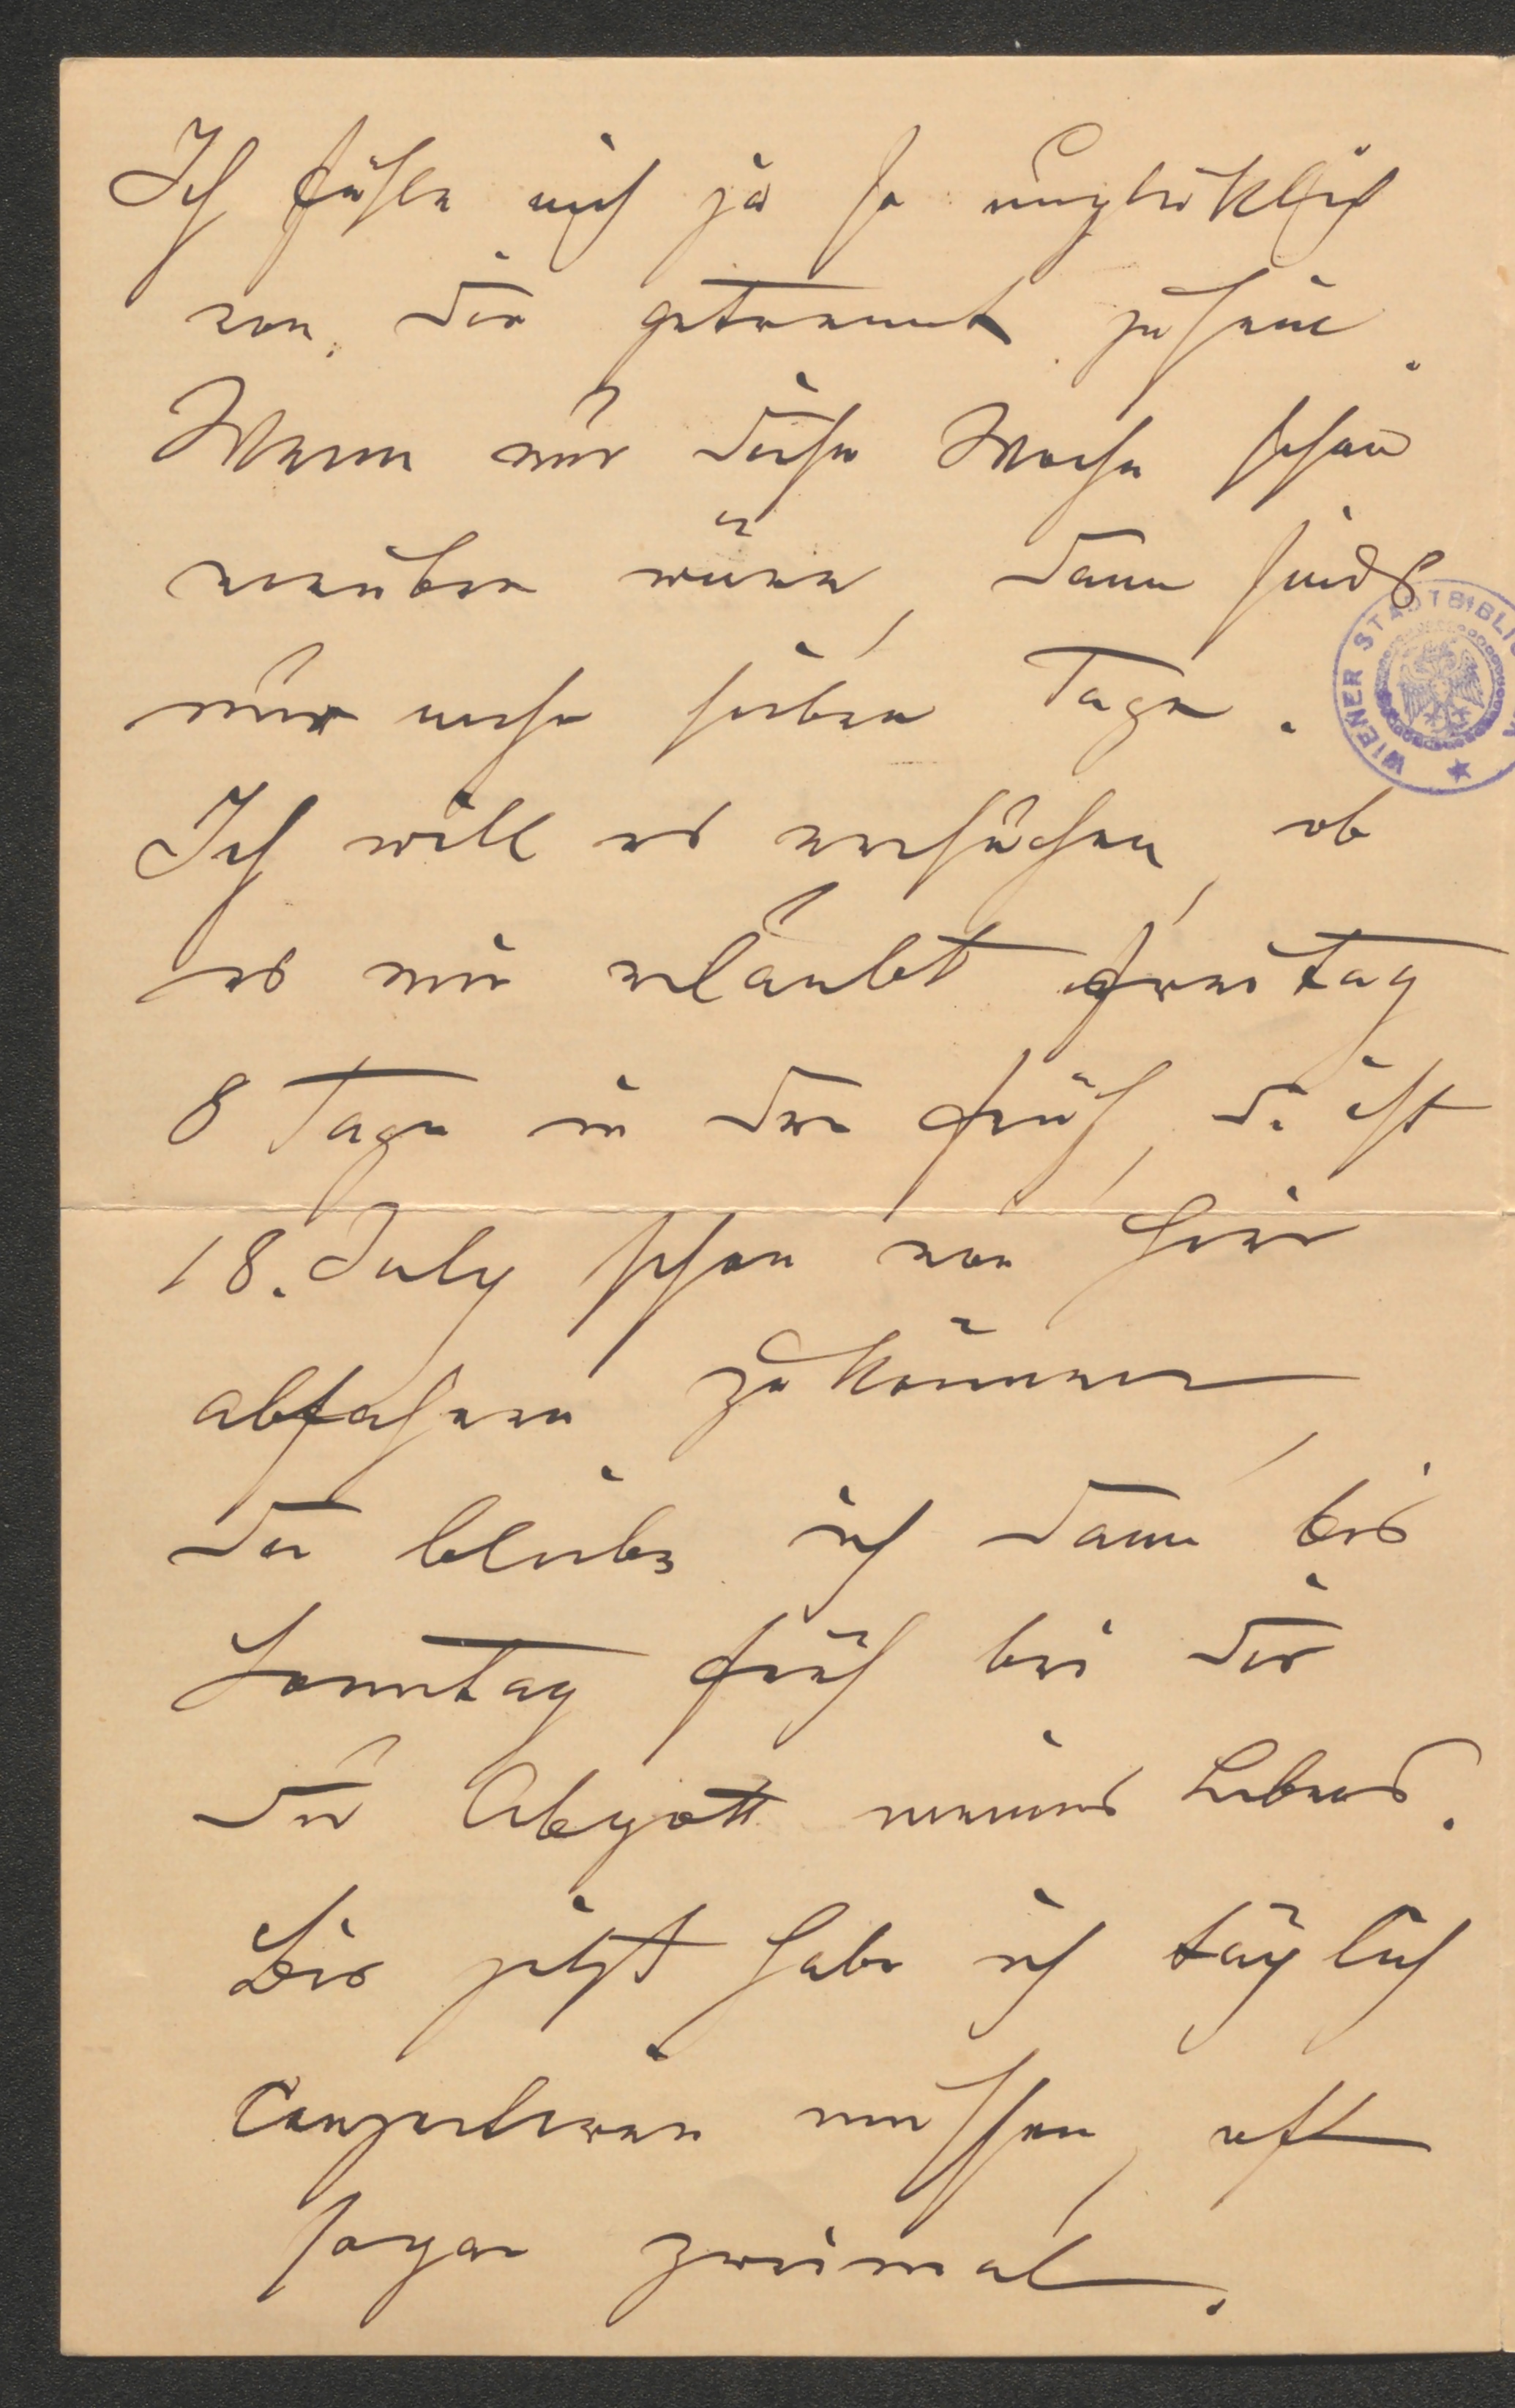 Ich fühle mich ja so unglücklich
von Dir getrennt zu sein.
Wenn nur diese Woche schon
vorüber wäre, dann sinds
nur mehr sieben Tage.
Ich will es versuchen, ob
es mir erlaubt Freitag
8 Tage in der früh, d. ist
18. July schon von hier
abfahren zu können,
da bleibe ich dann bis
Sonntag früh bei Dir
Du Abgott meines Lebens.
Bis jetzt habe ich täglich
Conzertieren müssen, oft
sogar zweimal.
WIENER STADTBIBLIO